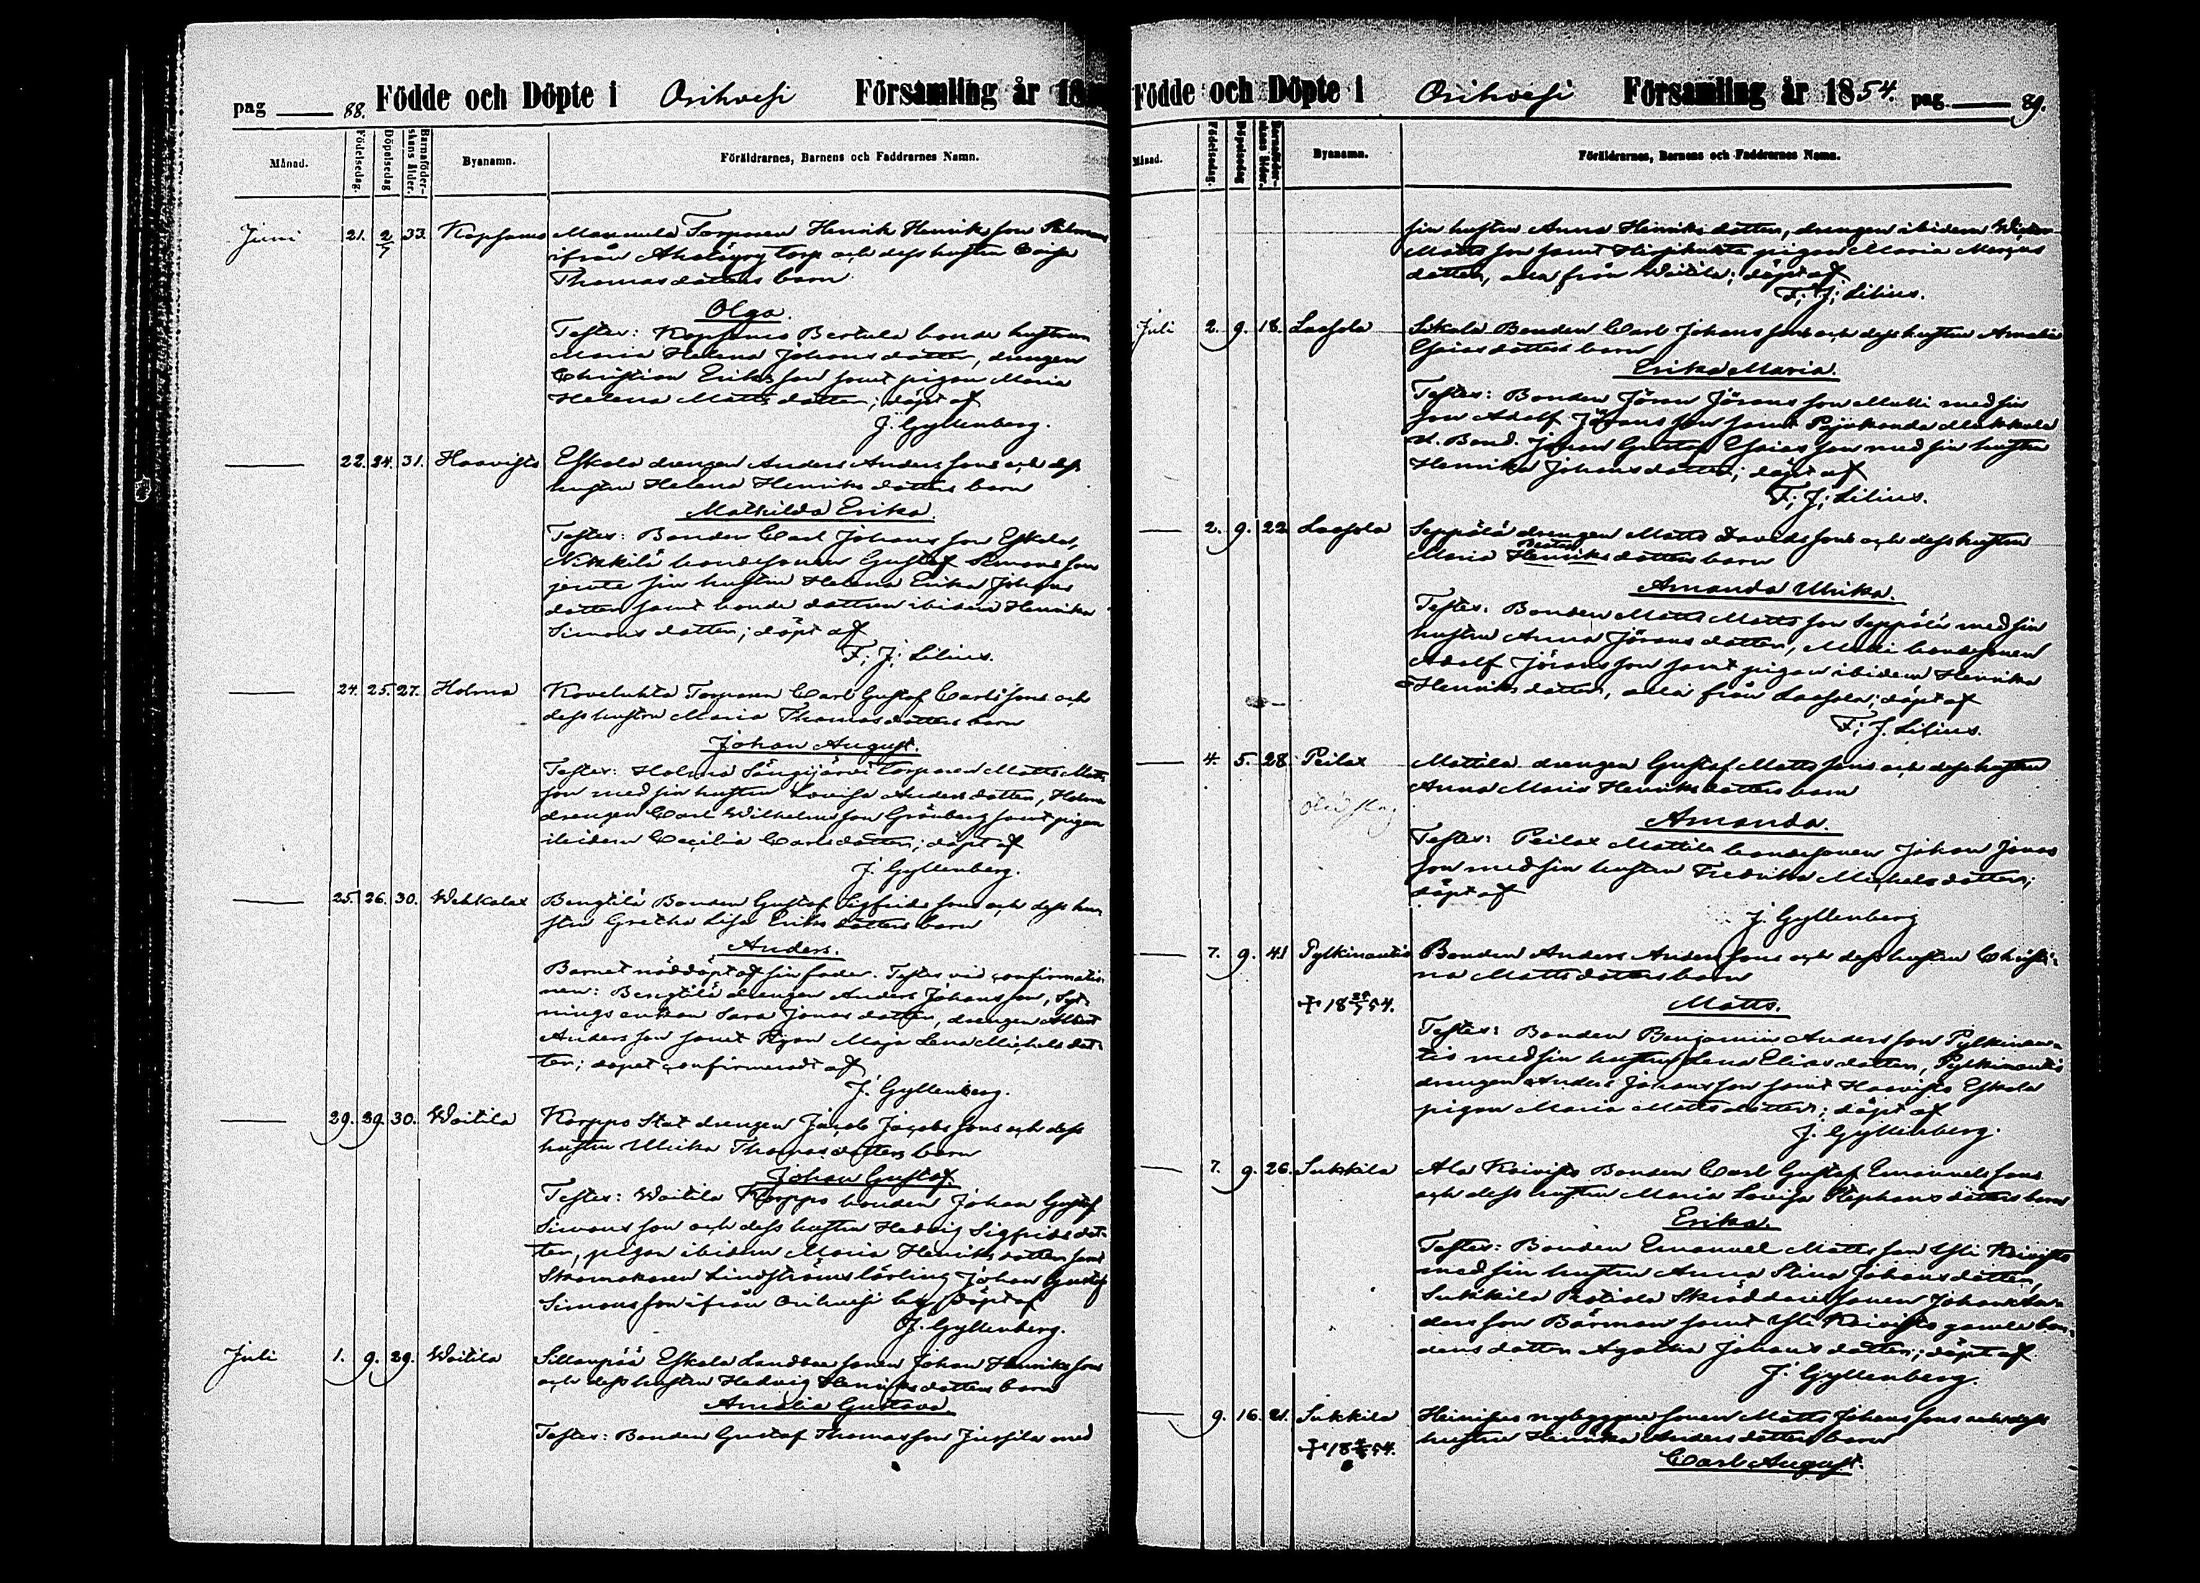 pag 88. Födde och Döpte i Orihvesi Församling år 18
Månad. Födelsedag. Döpelsedag Barnaföderskans ålder. Byanamn. Föräldrarnes, Barnens och Faddrarnes Namn.
Juni 21. 2/7 33. Kopsamo Maunula Torparen Henrik Henriksson
ifrån torp och dess hustru Caisa
Thomasdotters barn
Olga.
Testes: Kopsamo Bertula bonde hustrun
Maria Helena Johansdotter, drengen
Christian Eriksson samt pigan Maria
Helena Mattsdotter; döpt af
J. Gyllenberg.
22. 24. 31. Haavisto Eskola drengen Anders Anderssons och dess
hustru Helena Henriksdotters barn
Mathilda Erika.
Testes: Bonden Carl Johansson Eskola,
Nikkilä bondesonen Gustaf Simonsson
jemte sin hustru Helena Erika Johans
dotter samt bonde dottren ibidem Henrika
Simonsdotter; döpt af
F. J. Lilius.
24. 25. 27. Holma Kovelahti Torparen Carl Gustaf Carlssons och
dess hustru Maria Thomasdotters barn
Johan August.
Testes: Holma Torparen Matts Matts
son med sin hustru Lovisa Andersdotter, Holma
drengen Carl Wilhelmsson Grönberg samt pigan
ibidem Cecilia Carlsdotter; döpt af
J. Gyllenberg.
25. 26. 30. Wehkalax Bengtilä Bonden Gustaf Sigfridssons och dess hu-
stru Gretha Lisa Eriksdotters barn
Anders.
Barnet nöddöpt af sin fader. Testes vid confirmatio-
nen: Bengtilä drengen Anders Johansson, Syt-
nings enkan Sara Jonasdotter, drengen
Andersson samt Pigan Maja Lena Michelsdot-
ter; dopet confirmeradt af
J. Gyllenberg.
29. 29. 30. Woitila Korppo Stat drengen Jacob Jacobssons och dess
hustru Ulrika Thomasdotters barn
Johan Gustaf.
Testes: Woitila Korppo bonden Johan Gustaf
Simonsson och dess hustru Hedvig Sigfridsdot-
ter, pigan ibidem Maria Henriksdotter samt
Skomakaren Lindströms lärling Johan Gustaf
Simonsson ifrån Orihvesi by; Döpt af
J. Gyllenberg.
Juli 1. 9. 29. Woitila Sillanpää Eskola Landbo sonen Johan Henrikssons
och dess hustru Hedvig Henriksdotters barn
Amalia Gustava.
Testes: Bonden Gustaf Thomasson Jussila med
Födde och Döpte i Orihvesi Församling år 1854. pag 89.
Månad. Födelsedag. Döpelsedag Barnaföderskans ålder. Byanamn. Föräldrarnes, Barnens och Faddrarnes Namn.
sin hustru Anna Henriksdotter, drengen ibidem
Mattsson samt pigan Maria
dotter, alla från Woitila; döpt af
F. J. Lilius.
Juli 2. 9. 18. Laasola Sikala Bonden Carl Johanssons och dess hustru Amalia
Esaiasdotters barn
Erika Maria.
Testes: Bonden Jöran Jöransson Mutti med sin
son Adolf Jöransson samt Makkola
Bond. Johan Gustaf Esaiasson med sin hustru
Henrika Johansdotter; döpt af
F. J. Lilius.
2. 9. 22 Laasola Seppälä drengen Matts Davidssons och dess hustru
Maria Henriksdotters barn
Amanda Ulrika.
Testes: Bonden Matts Mattsson Seppälä med sin
hustru Anna Jöransdotter, Mutti bondesonen
Adolf Jöransson samt pigan ibidem Henrika
Henriksdotter, alla från Laasola; döpt af
F. J. Lilius.
4. 5. 28. Peilax Mattila drengen Gustaf Mattssons och dess hustru
Anna Maria Henriksdotters barn
Amanda.
Testes: Peilax Mattila bondesonen Johan Jonas
son med sin hustru Fredrika Michelsdotter;
döpt af
J. Gyllenberg
7. 9. 41 Pylkinautio Bonden Anders Anderssons och dess hustru Christi-
na Mattsdotters barn
Matts.
† 18 54.
Testes: Bonden Benjamin Andersson Pylkinau-
tio med sin hustru Lena Eliasdotter, Pylkinautio
drengen Anders Johansson samt Haavisto Eskola
pigan Maria Mattsdotter; döpt af
J. Gyllenberg.
7. 9. 26. Sukkila Ala Knivisto Bonden Carl Gustaf Emanuelssons
och dess hustru Maria Lovisa Stephansdotters barn
Erika.
Testes: Bonden Emanuel Mattsson Yli
med sin hustru Anna Stina Johansdotter,
Sukkila Skräddaresonen Johan An-
dersson Bärman samt Yli gamle bon-
dens dotter Agatha Johansdotter; döpt af
J. Gyllenberg.
9. 16. 21. Sukkila Heinijoi nybyggare sonen Matts Johanssons och dess
hustru Henrika Andersdotters barn
† 18 54.
Carl August.